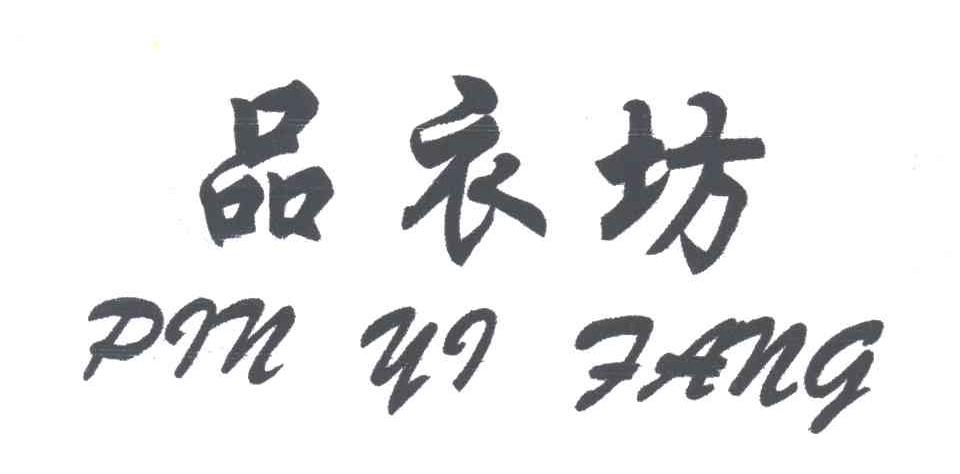 品衣坊
PIN YI FANG